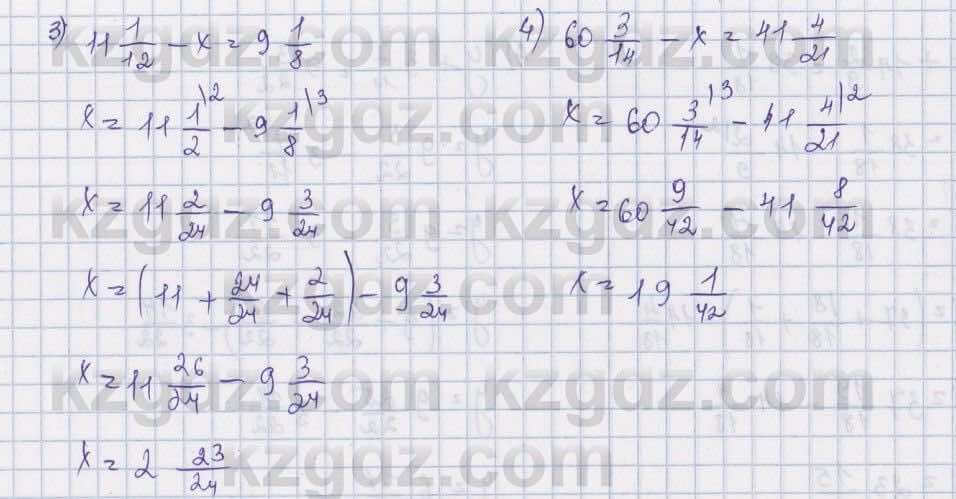 3) 11 1/12 − x = 9 1/8
x = 11 1/2 \2 − 9 1/8 \3
x = 11 2/24 − 9 3/24
x = (11 + 24/24 + 2/24) − 9 3/24
x = 11 26/24 − 9 3/24
x = 2 23/24
4) 60 3/14 − x = 41 4/21
x = 60 3/14 \3 − 41 4/21 \2
x = 60 9/42 − 41 8/42
x = 19 1/42
kzgdz.com kzgdz.com
kzgdz.com kzgdz.com
kzgdz.com kzgdz.com
kzgdz.com kzgdz.com
kzgdz.com kzgdz.com
kzgdz.com kzgdz.com